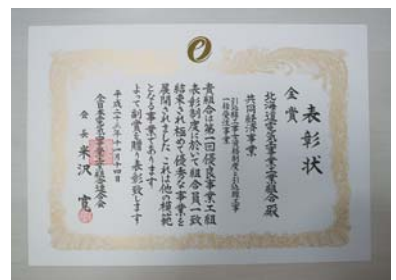 表彰状
金賞
北海道電気工事業工業組合殿
共同経済事業
引込線工事士資格制度と引込線工事
一括受注事業
貴組合は第一回優良事業工組
表彰制度に於いて組合員一致
結束され極めて優秀な事業を
展開されました これは他の模範
となる事業であります
よって副賞を贈り表彰致します
平成二十八年十一月十四日
全日本電気工事業工業組合連合会
会長 米沢 寛